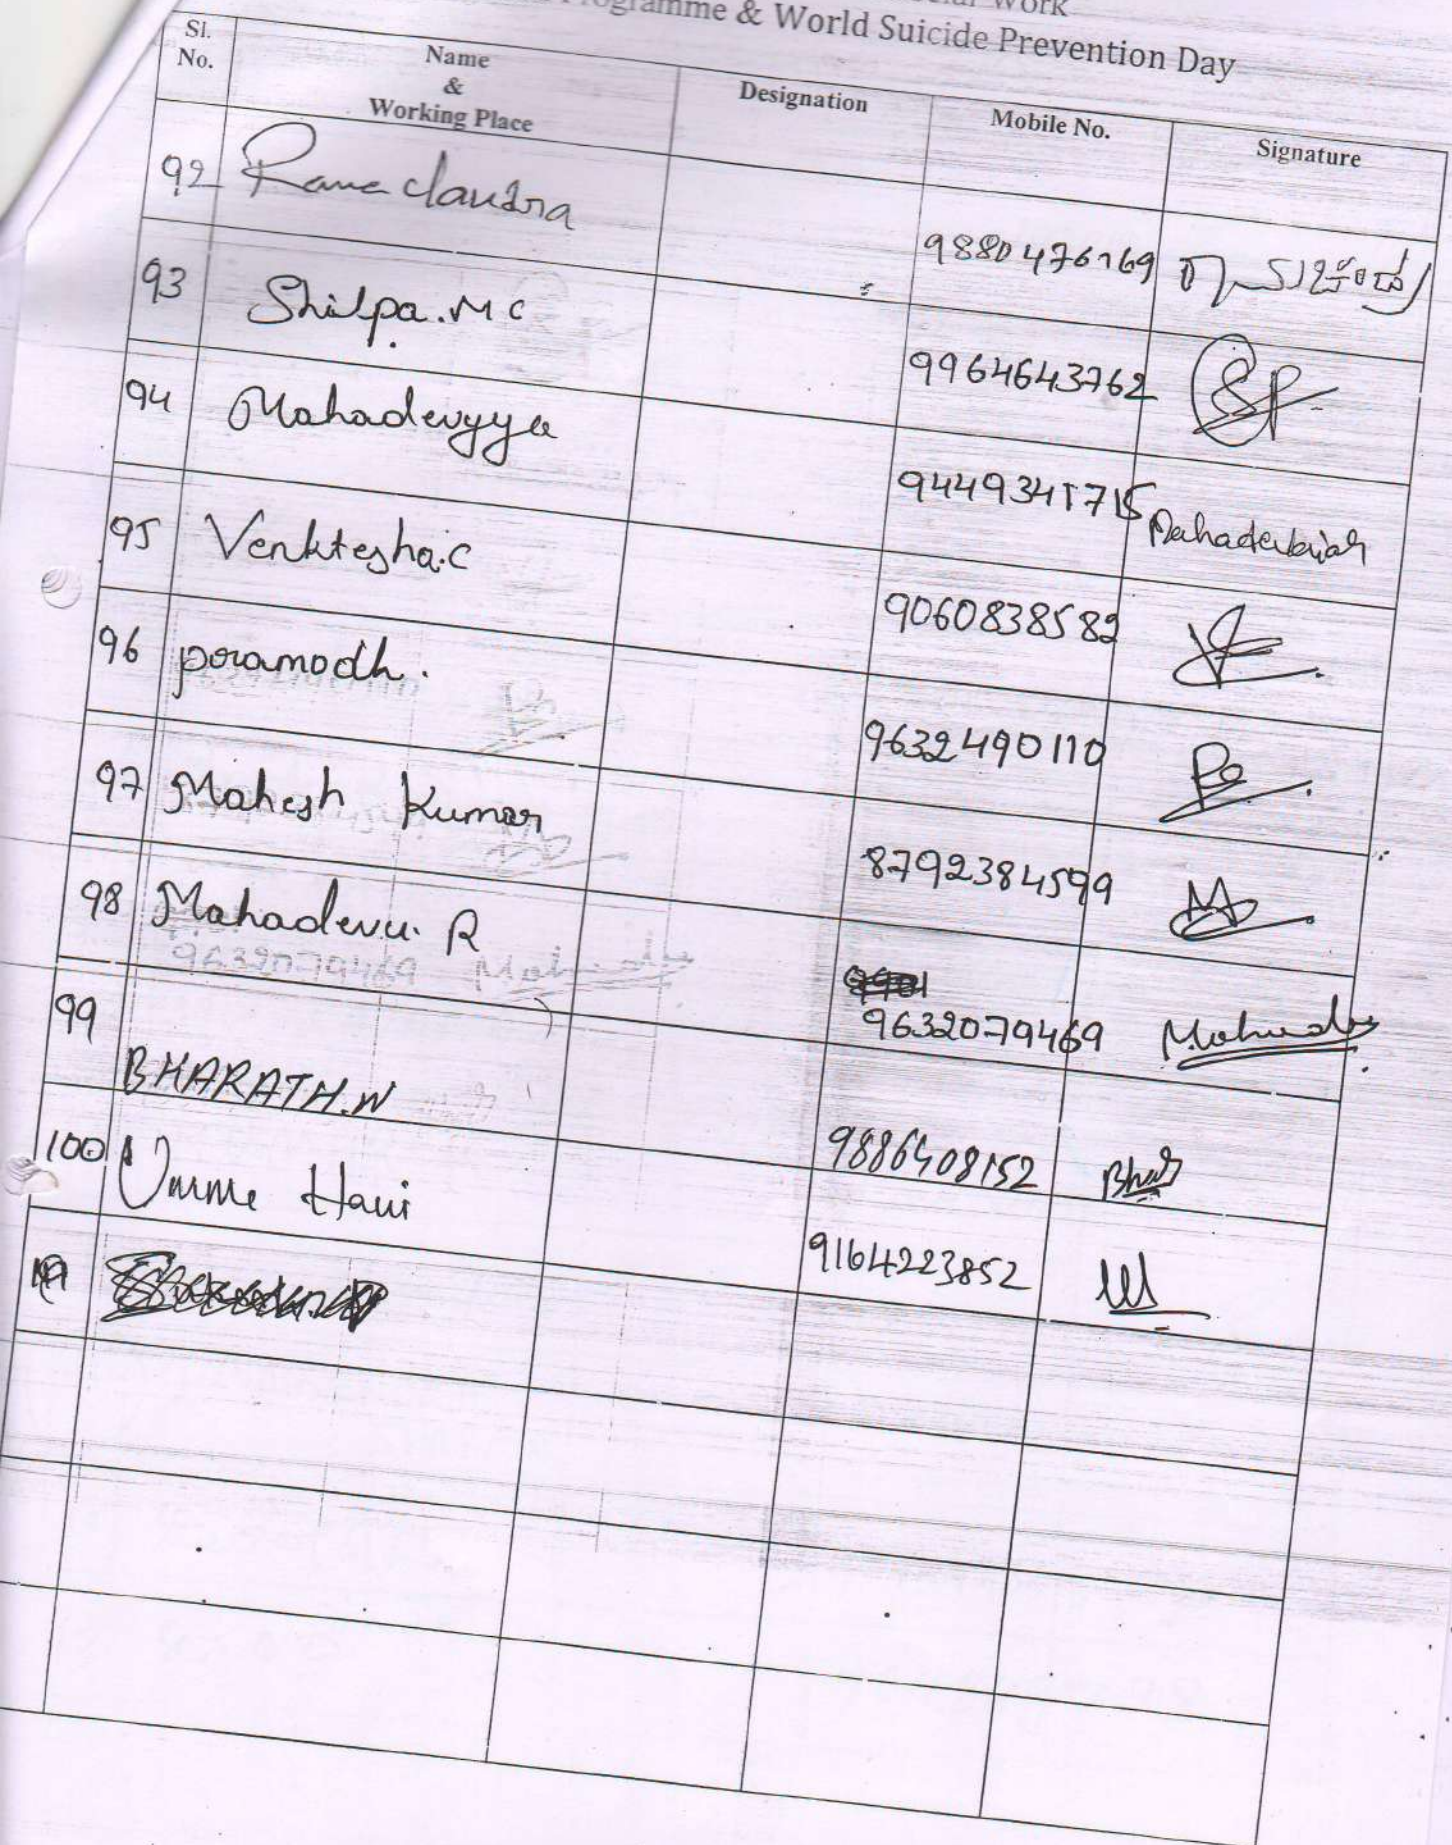 Work
Programme & World Suicide Prevention Day
Sl. No. Name & Working Place Designation Mobile No. Signature
92 Rama Chandra 9880476169 ರಾಮಚಂದ್ರ
93 Shilpa.M C 9964643762 SP
94 Mahadevyya 9449341715 Mahadevaiah
95 Venktesha.C 9060838582
96 poramodh. 9632490110
97 Mahesh Kumar 8792384599
98 Mahadevu. R 9632079469
99 BHARATH.N 9886408152
100 Umme Hani 9164223852